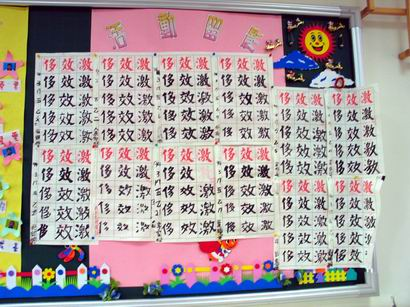 活動
侈效激 侈效激 侈效激 侈效激
侈效激 侈效激 侈效激 侈效激
侈效激 侈效激 侈效激 侈效激
侈效激 侈效激 侈效激 侈效激
侈效激 侈效激 侈效激 侈效激
侈效激 侈效激 侈效激 侈效激
侈效激 侈效激 侈效激 侈效激
侈效激 侈效激 侈效激 侈效激
侈效激 侈效激 侈效激 侈效激
侈效激 侈效激 侈效激 侈效激
侈效激 侈效激
侈效激 侈效激
侈效激 侈效激
侈效激 侈效激
侈效激 侈效激
侈效激 侈效激
侈效激 侈效激
侈效激 侈效激
侈效激 侈效激
侈效激 侈效激